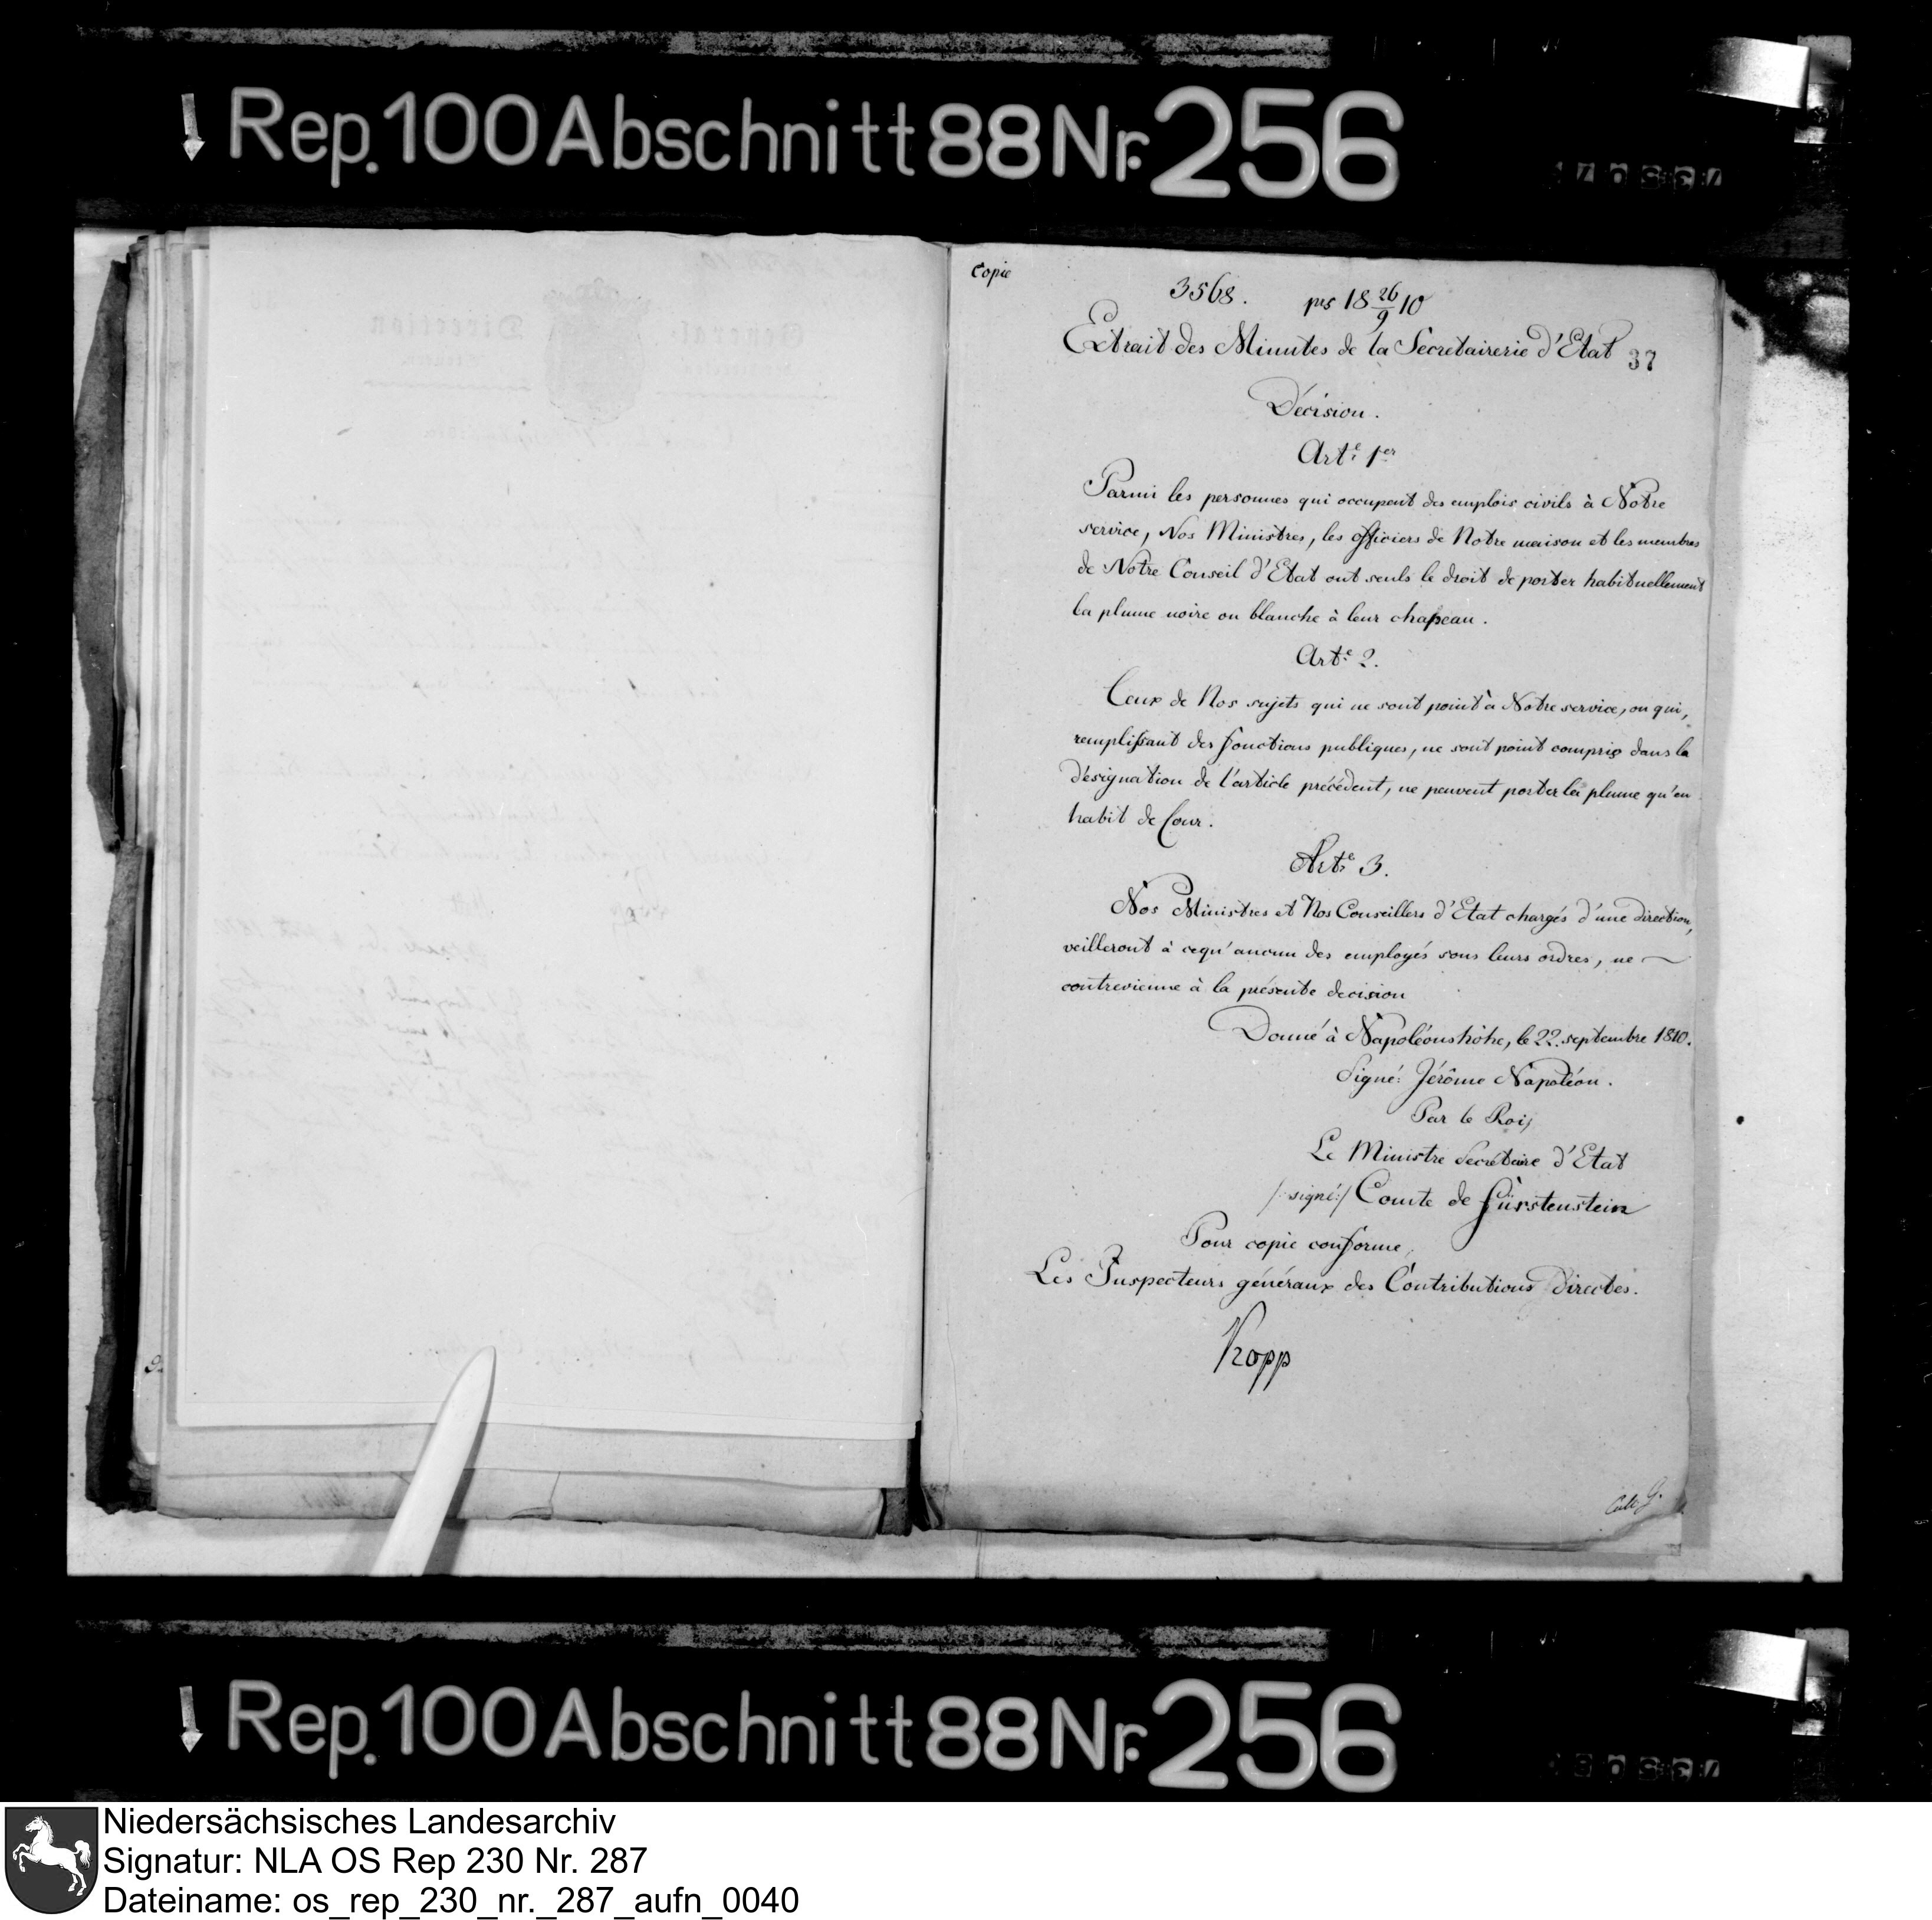 Rep. 100 Abschnitt 88 Nr. 256
Copie
3568. prs 18 26/9 10
Extrait des Minutes de la Secretairerie d'Etat
37
Décision.
Arte. 1er
Parmi les personnes qui occupent des emplois civils à Notre
service, Nos Ministres, les officiers de Notre maison et les membres
de Notre Conseil d'Etat ont seuls le droit de porter habituellement
la plume noire ou blanche à leur chapeau.
Arte. 2.
Ceux de Nos sujets qui ne sont point à Notre service, ou qui,
remplissant des fonctions publiques, ne sont point compris dans la
désignation de l'article précédent, ne peuvent porter la plume qu'en
habit de Cour.
Arte. 3.
Nos Ministres et Nos Conseillers d'Etat chargés d'une direction,
veilleront à cequ'aucun des employés sous leurs ordres, ne
contrevienne à la présente decision
Donné à Napoléonshöhe, le 22. septembre 1810.
Signé: Jérôme Napoléon.
Par le Roi,
Le Ministre Secrétaire d'Etat
/: signé:/ Comte de Fürstenstein
Pour copie conforme,
Les Inspecteurs généraux des Contributions Directes.
Kopp
Rep. 100 Abschnitt 88 Nr. 256
Niedersächsisches Landesarchiv
Signatur: NLA OS Rep 230 Nr. 287
Dateiname: os_rep_230_nr._287_aufn_0040